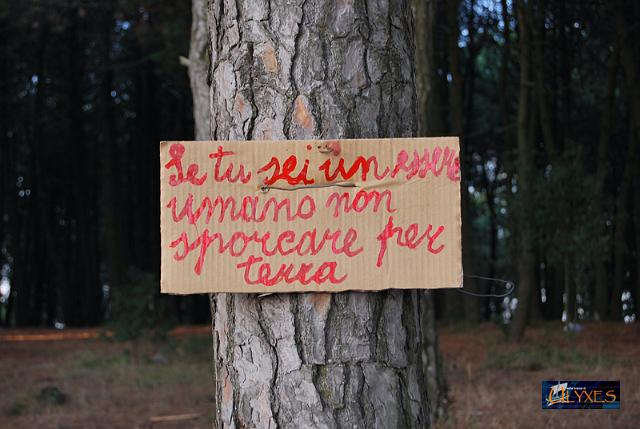 Se tu sei un essere
umano non
sporcare per
terra
LYXES